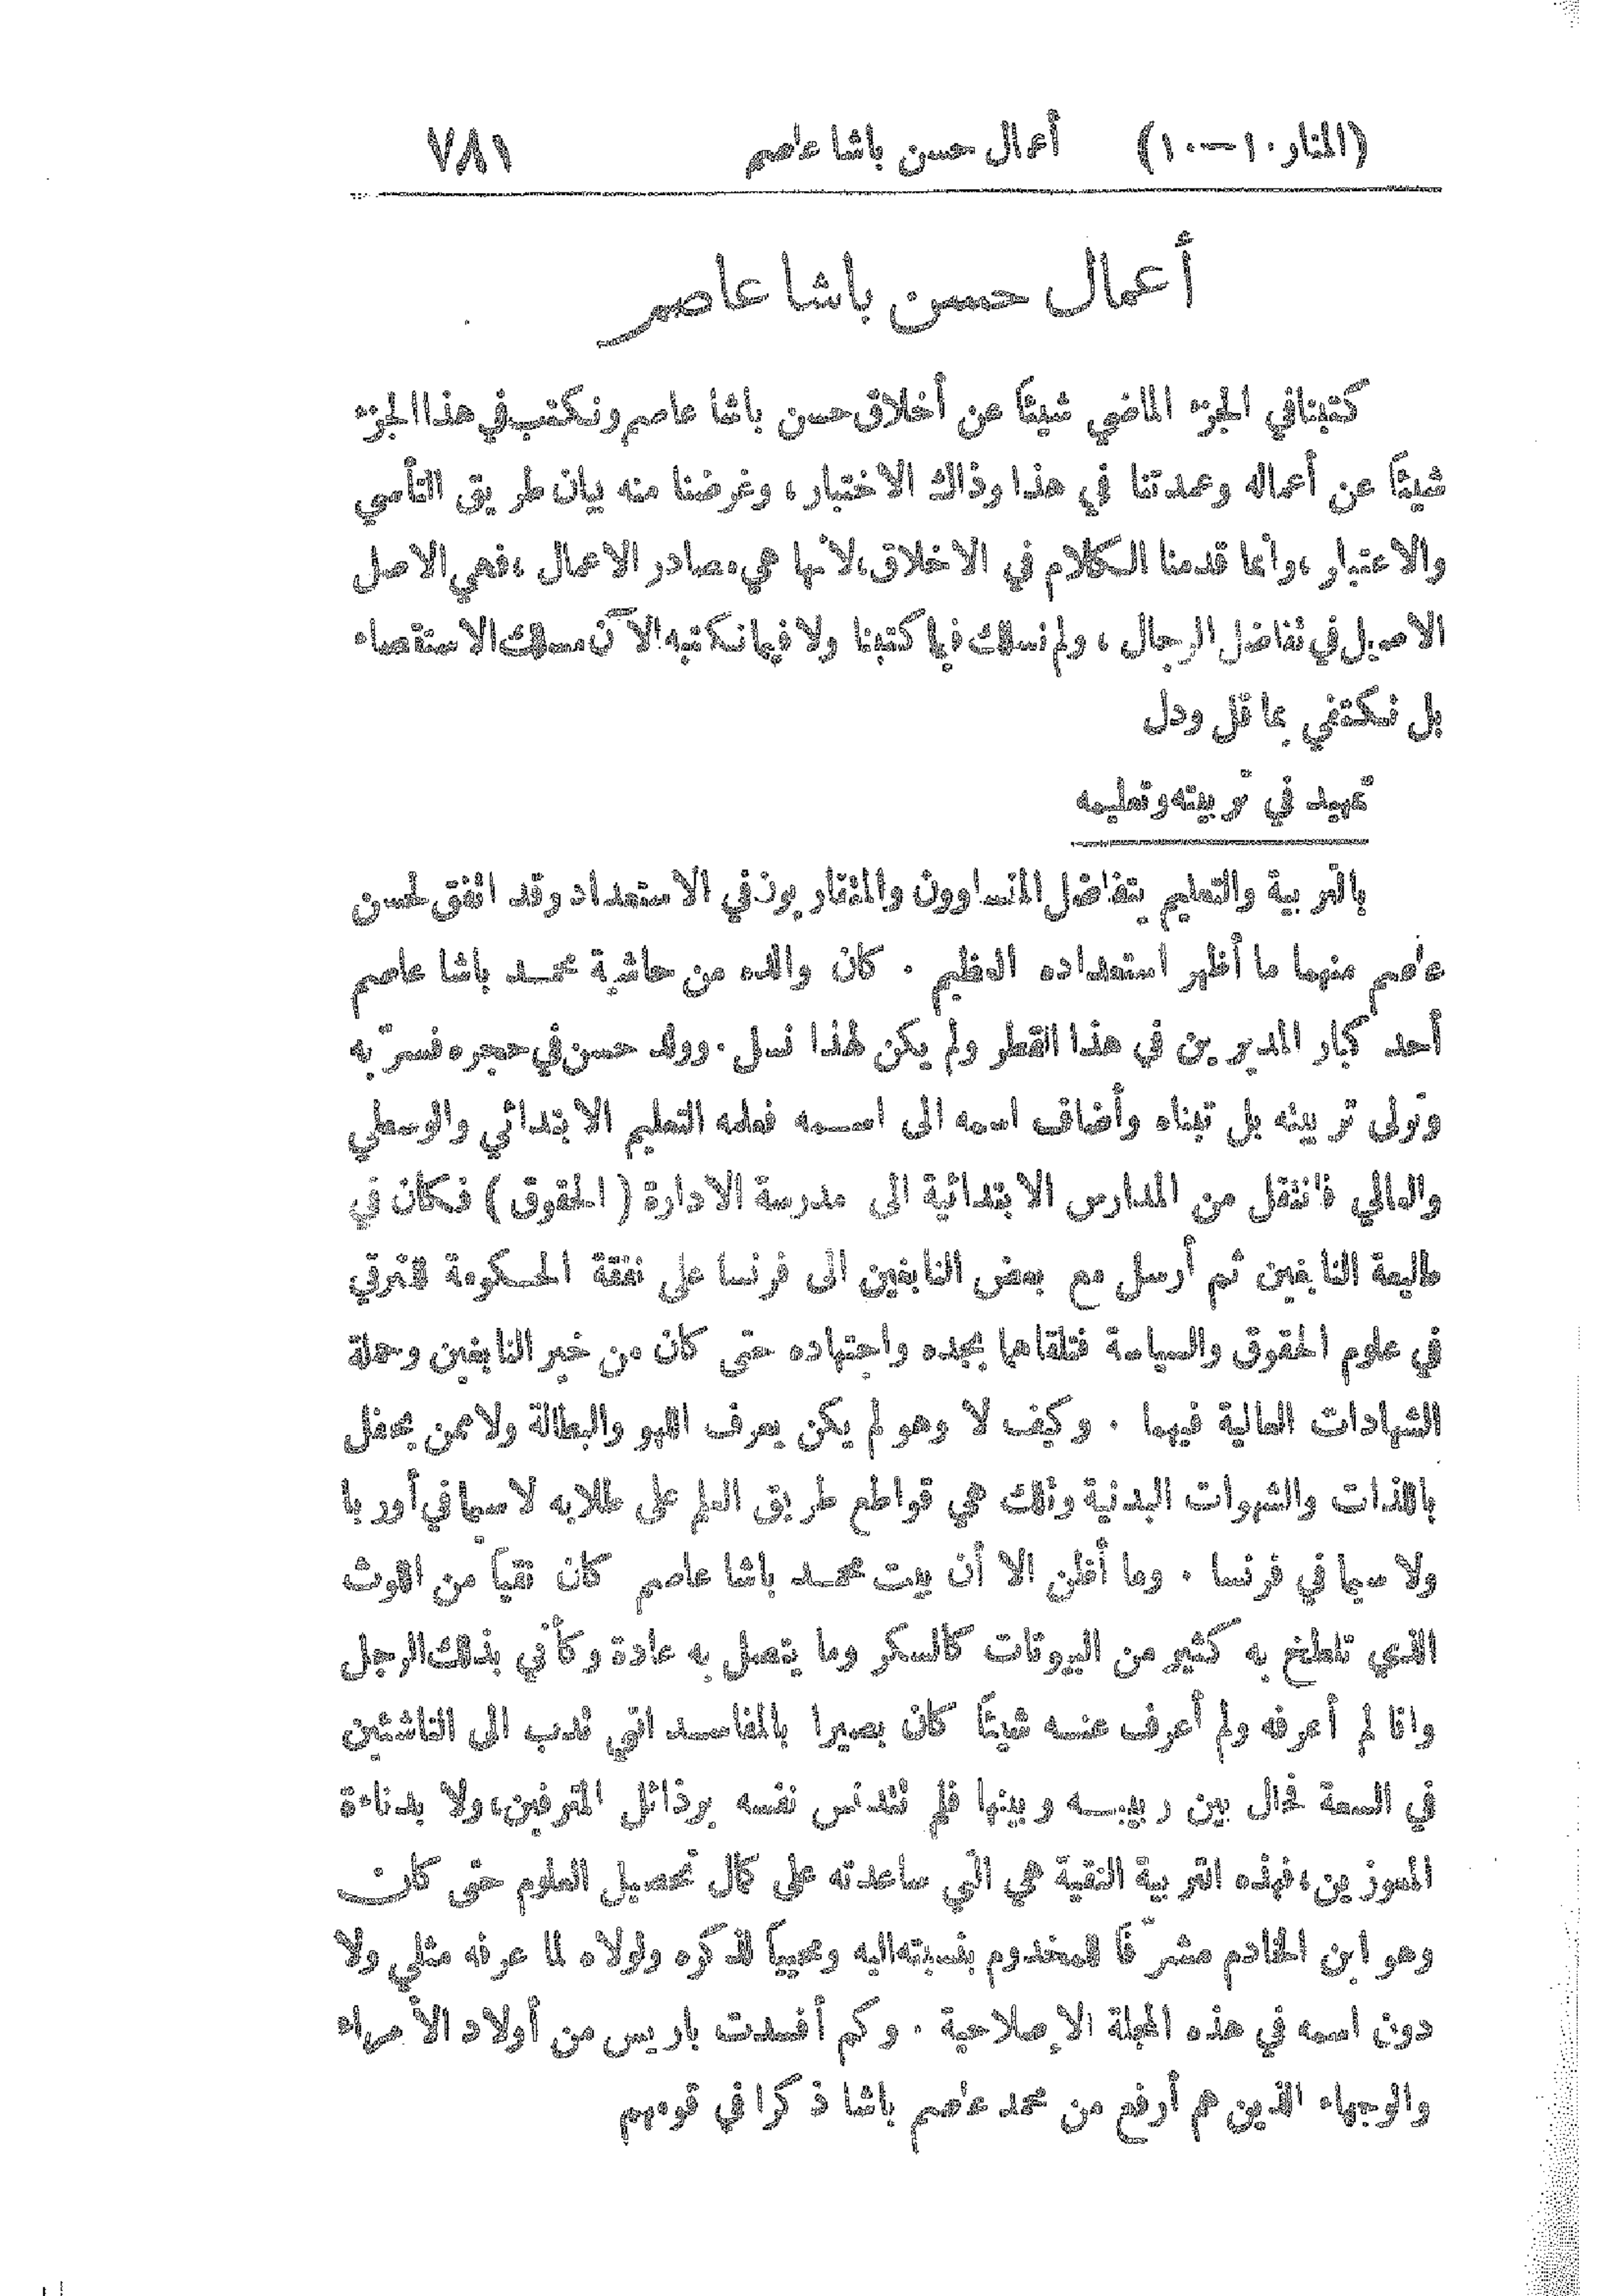 (المنار ١٠–١٠) أعمال حسن باشا عاصم ٧٨١
أعمال حسن باشا عاصم
كتبنا في الجزء الماضي شيئاً عن أخلاق حسن باشا عاصم ونكتب في هذا الجزء
شيئاً عن أعماله وعمدتنا في هذا وذاك الاختبار، وغرضنا منه بيان طريق التأسي
والاعتبار، وانما قدمنا الكلام في الاخلاق، لأنها هي مصادر الاعمال، فهي الاصل
الاصيل في تفاضل الرجال، ولم نسلك فيما كتبنا ولا فيما نكتبه الآن مسلك الاستقصاء
بل نكتفي بما قل ودل
تمهيد في تربيته وتعليمه
بالتربية والتعليم يتفاضل المتساوون والمتقاربون في الاستعداد وقد اتفق لحسن
عاصم منهما ما أظهر استعداده العظيم . كان والده من حاشية محمد باشا عاصم
أحد كبار المديرين في هذا القطر ولم يكن لهذا نسل . وولد حسن في حجره فسرّ به
وتولى تربيته بل تبناه وأضاف اسمه الى اسمه فعلمه التعليم الابتدائي والوسطي
والعالي فانتقل من المدارس الابتدائية الى مدرسة الادارة (الحقوق) فكان في
طليعة النابغين ثم أرسل مع بعض النابغين الى فرنسا على نفقة الحكومة للترقي
في علوم الحقوق والسياسة فتلقاها بجده واجتهاده حتى كان من خير النابغين وحملة
الشهادات العالية فيهما . وكيف لا وهو لم يكن يعرف اللهو والبطالة ولا ممن يحفل
باللذات والشهوات البدنية وتلك هي قواطع طريق العلم على طلابه لا سيما في أوربا
ولا سيما في فرنسا . وما أظن الا أن بيت محمد باشا عاصم كان نقياً من اللوث
الذي تلطخ به كثير من البيوتات كالسكر وما يتصل به عادة وكأني بذلك الرجل
وانا لم أعرفه ولم أعرف عنه شيئاً كان بصيرا بالمفاسد التي تدب الى الناشئين
في السعة فحال بين ربيبه وبينها فلم تتدنس نفسه برذائل المترفين، ولا بدناءة
المعوزين، فهذه التربية النقية هي التي ساعدته على كمال تحصيل العلوم حتى كان
وهو ابن الخادم مشرّفاً للمخدوم بنسبته اليه ومحيياً لذكره ولولاه لما عرفه مثلي ولا
دون اسمه في هذه المجلة الإصلاحية . وكم أفسدت باريس من أولاد الأمراء
والوجهاء الذين هم أرفع من محمد عاصم باشا ذكرا في قومهم